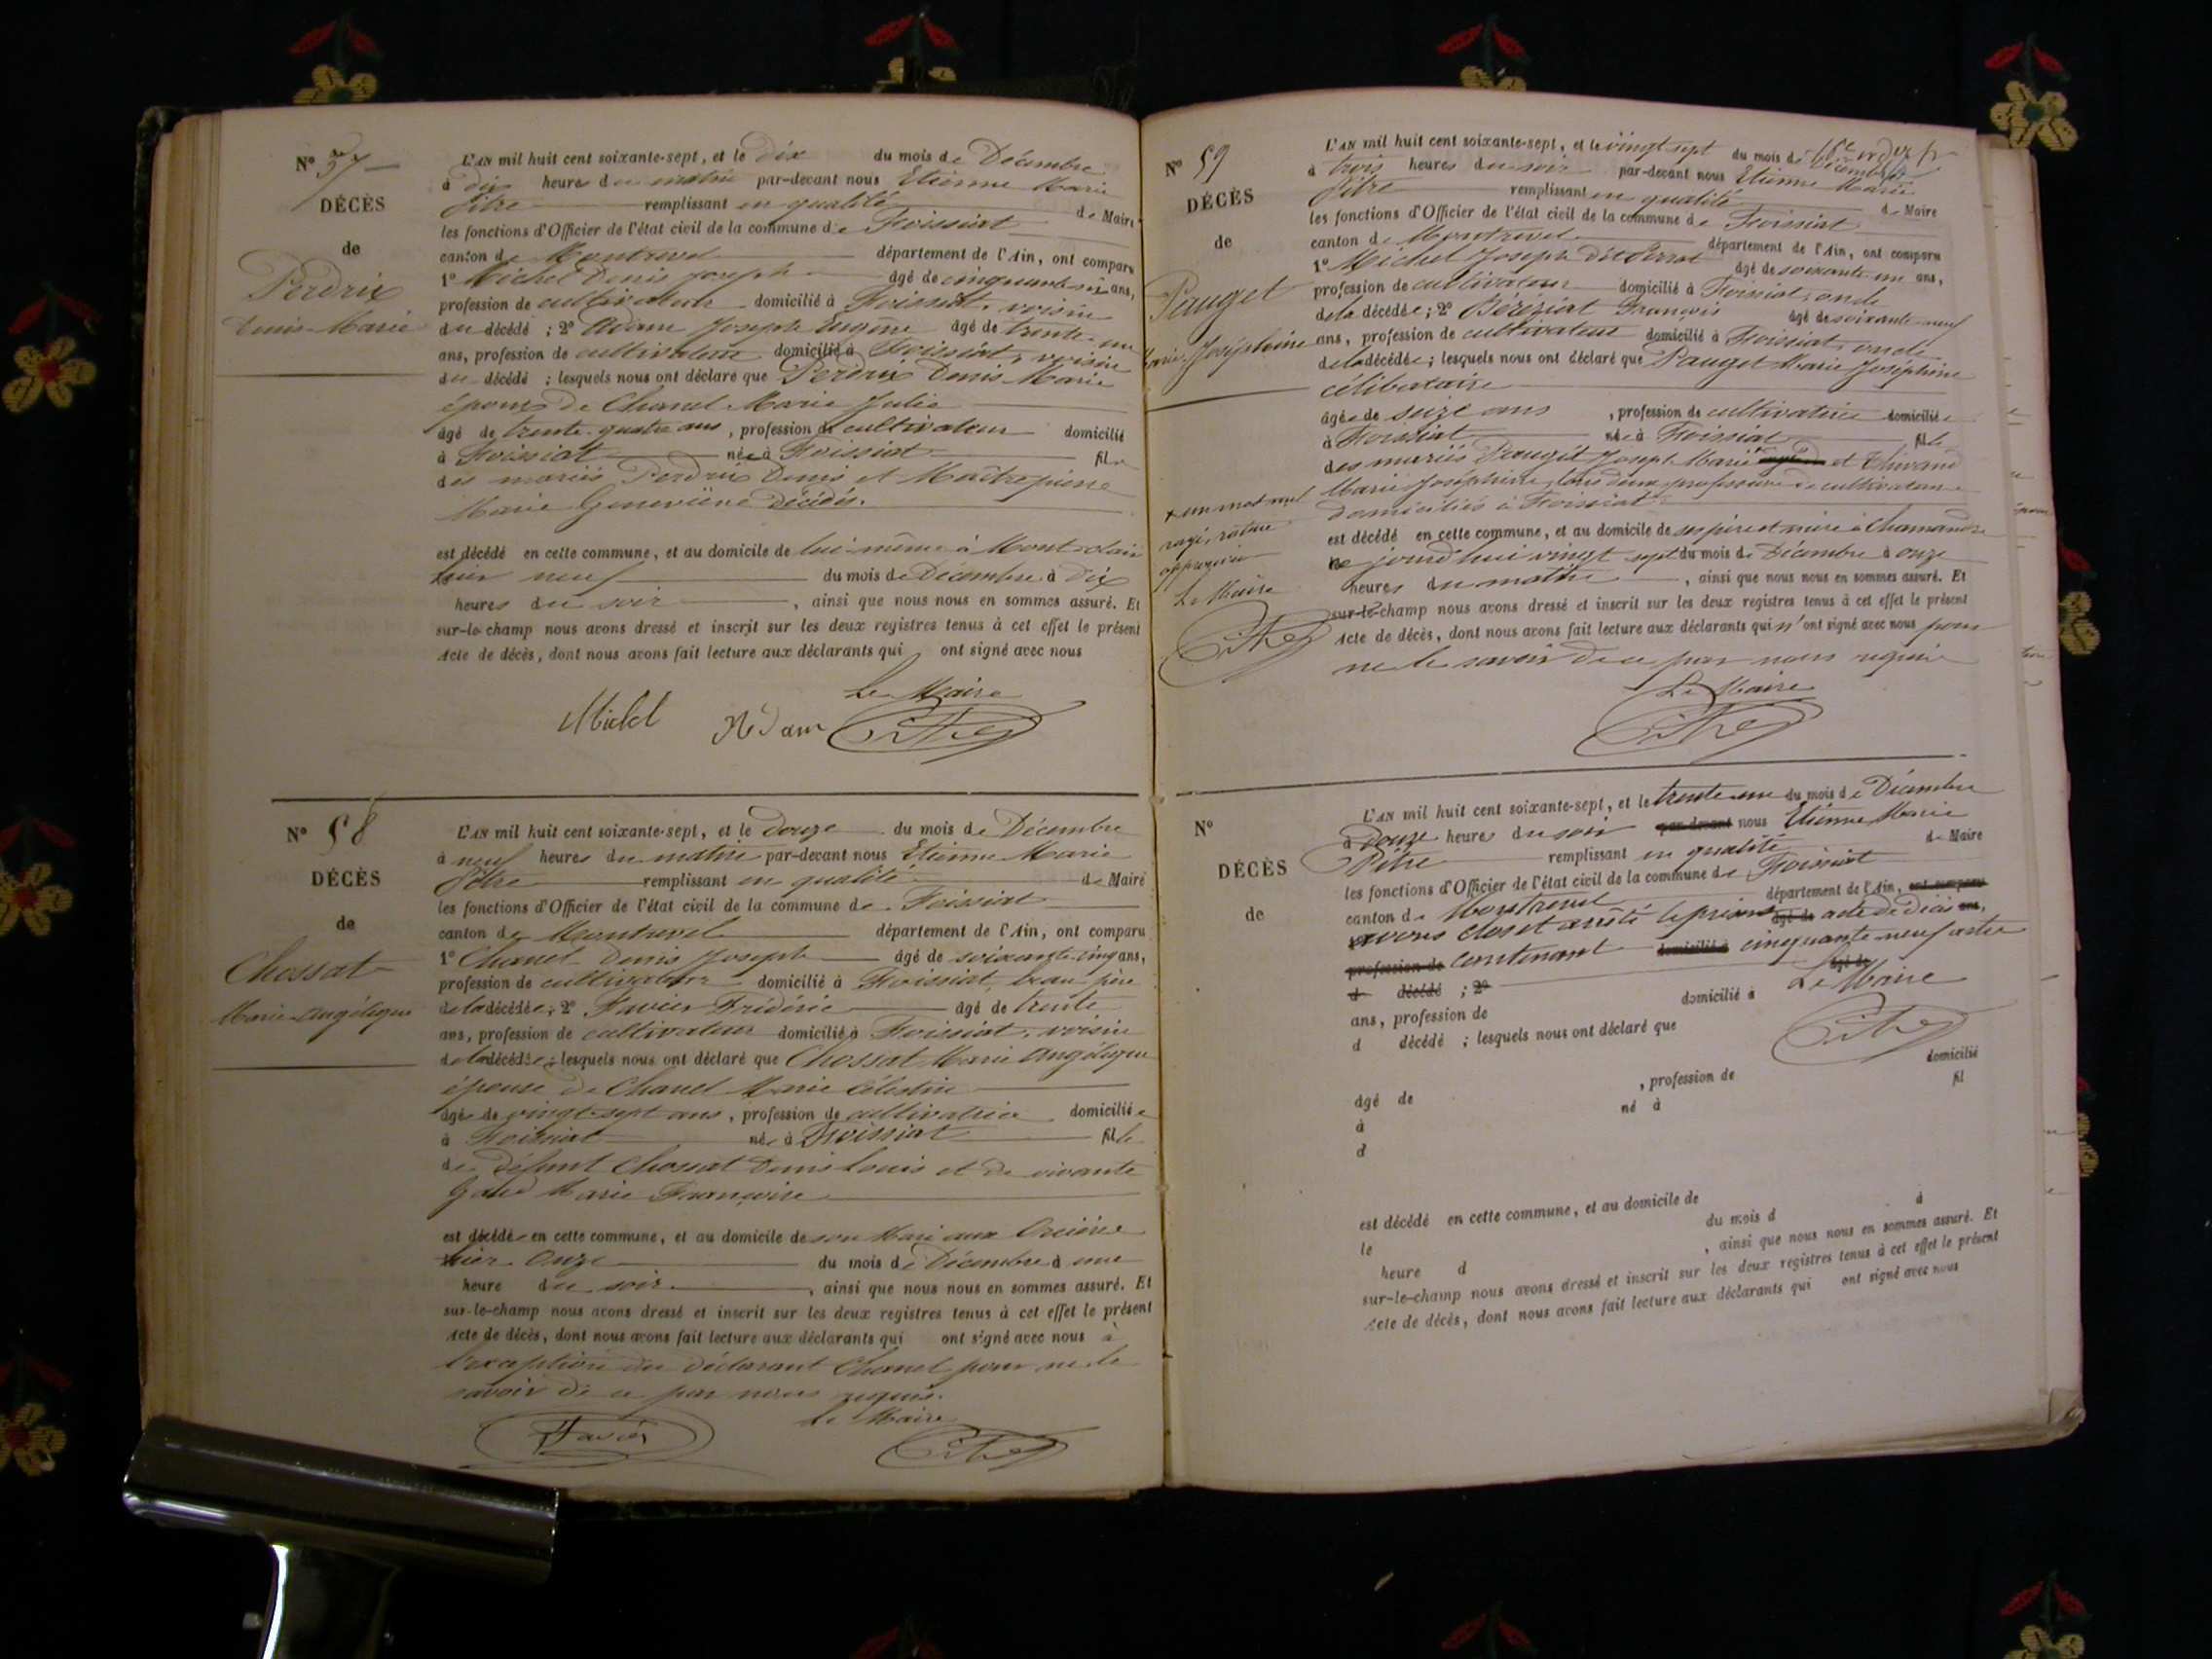 N° 57
DÉCÈS
de
Perdrix
Denis-Marie
L'AN mil huit cent soixante-sept, et le dix du mois de Décembre
à dix heures du matin par-devant nous Etienne Marie
Pitre remplissant en qualité de Maire
les fonctions d'Officier de l'état civil de la commune de Foissiat
canton de Montrevel département de l'Ain, ont comparu
1° Michel Denis Joseph âgé de cinquante-six ans,
profession de cultivateur domicilié à Foissiat, voisin
du décédé ; 2° Adam Joseph Eugène âgé de trente-un
ans, profession de cultivateur domicilié à Foissiat, voisin
du décédé ; lesquels nous ont déclaré que Perdrix Denis Marie
époux de Chanel Marie Julie
âgé de trente-quatre ans, profession de cultivateur domicilié
à Foissiat né à Foissiat fils
des mariés Perdrix Denis et Maitrepierre
Marie Geneviève décédés.
est décédé en cette commune, et au domicile de lui-même à Mont-clair
hier neuf du mois de Décembre à dix
heures du soir, ainsi que nous nous en sommes assuré. Et
sur-le-champ nous avons dressé et inscrit sur les deux registres tenus à cet effet le présent
Acte de décès, dont nous avons fait lecture aux déclarants qui ont signé avec nous
Le Maire
Michel Adam Pitre
N° 58
DÉCÈS
de
Chossat
Marie-Angélique
L'AN mil huit cent soixante-sept, et le Douze du mois de Décembre
à neuf heures du matin par-devant nous Etienne Marie
Pitre remplissant en qualité de Maire
les fonctions d'Officier de l'état civil de la commune de Foissiat
canton de Montrevel département de l'Ain, ont comparu
1° Chanel Denis Joseph âgé de soixante-cinq ans,
profession de cultivateur domicilié à Foissiat, beau père
de la décédée ; 2° Favier Frédéric âgé de trente
ans, profession de cultivateur domicilié à Foissiat, voisin
de la décédée ; lesquels nous ont déclaré que Chossat Marie Angélique
épouse de Chanel Marie Célestin
âgée de vingt-sept ans, profession de cultivatrice domiciliée
à Foissiat née à Foissiat fille
de défunt Chossat Denis Louis et de vivante
Marie Françoise
est décédée en cette commune, et au domicile de son Mari aux
hier onze du mois de Décembre à une
heure du soir, ainsi que nous nous en sommes assuré. Et
sur-le-champ nous avons dressé et inscrit sur les deux registres tenus à cet effet le présent
Acte de décès, dont nous avons fait lecture aux déclarants qui ont signé avec nous à
l'exception du déclarant Chanel pour ne le
savoir de ce par nous requis.
Le Maire
Favier Pitre
N° 59
DÉCÈS
de
Pauget
Marie-Joséphine
L'AN mil huit cent soixante-sept, et le vingt sept du mois de Décembre
à trois heures du soir par-devant nous Etienne Marie
Pitre remplissant en qualité de Maire
les fonctions d'Officier de l'état civil de la commune de Foissiat
canton de Montrevel département de l'Ain, ont comparu
1° Michel Joseph dit Perrot âgé de soixante-un ans,
profession de cultivateur domicilié à Foissiat, oncle
de la décédée ; 2° Béréziat François âgé de soixante-neuf
ans, profession de cultivateur domicilié à Foissiat, oncle
de la décédée ; lesquels nous ont déclaré que Pauget Marie Joséphine
célibataire
âgée de seize ans, profession de cultivatrice domiciliée
à Foissiat née à Foissiat fille
des mariés Pauget Joseph Marie et Thivand
Marie Joséphine, tous deux profession de cultivateurs
domiciliés à Foissiat
est décédé en cette commune, et au domicile de ses père et mère à
ce jourd'hui vingt sept du mois de Décembre à onze
heures du matin, ainsi que nous nous en sommes assuré. Et
sur-le-champ nous avons dressé et inscrit sur les deux registres tenus à cet effet le présent
Acte de décès, dont nous avons fait lecture aux déclarants qui n'ont signé avec nous pour
ne le savoir de ce par nous requis
Le Maire
Pitre
+ un mot nul
rayé, rature
approuvée
Le Maire
Pitre
N°
DÉCÈS
de
L'AN mil huit cent soixante-sept, et le trente-un du mois de Décembre
à Douze heures du soir par-devant nous Etienne Marie
Pitre remplissant en qualité de Maire
les fonctions d'Officier de l'état civil de la commune de Foissiat
canton de Montrevel département de l'Ain, ont comparu
avons clos et arrêté le présent âgé de acte de décès ans,
profession de contenant domicilié à cinquante-neuf actes
d décédé ; 2° âgé de
Le Maire
ans, profession de domicilié à
Pitre
d décédé ; lesquels nous ont déclaré que
âgé de , profession de domicilié
à né à fil
d
est décédé en cette commune, et au domicile de
le du mois d à
heure d , ainsi que nous nous en sommes assuré. Et
sur-le-champ nous avons dressé et inscrit sur les deux registres tenus à cet effet le présent
Acte de décès, dont nous avons fait lecture aux déclarants qui ont signé avec nous